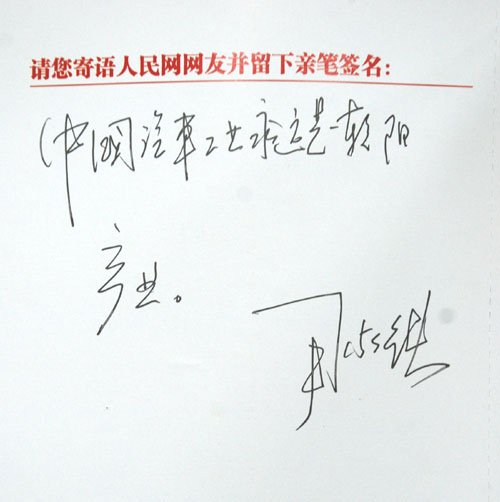 请您寄语人民网网友并留下亲笔签名：
中国汽车工业永远是朝阳
产业。